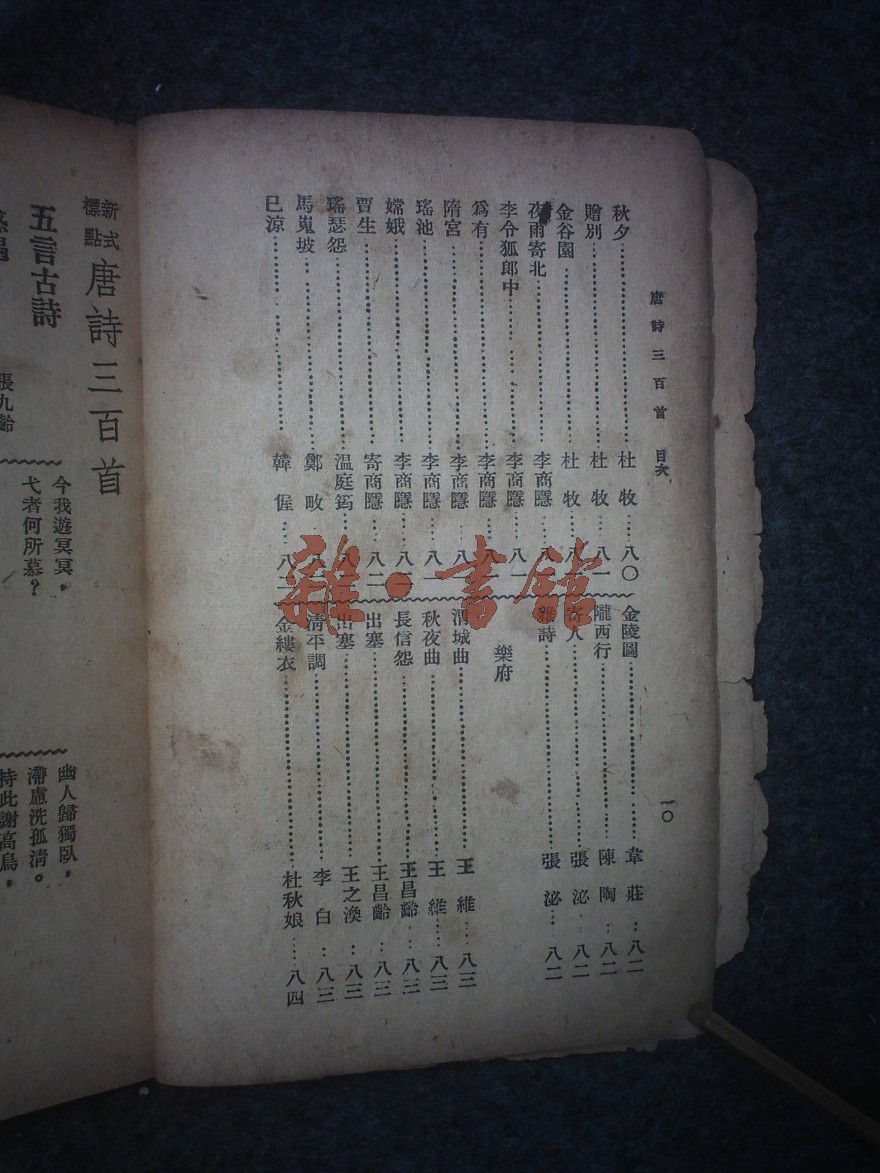 唐詩三百首 目次
一〇
秋夕 杜牧 八〇
贈別 杜牧 八一
金谷園 杜牧 八
夜雨寄北 李商隱 八
李令狐郎中 李商隱 八一
爲有 李商隱 八一
隋宮 李商隱 八
瑤池 李商隱 八一
嫦娥 李商隱 八一
賈生 寄商隱 八二
瑤瑟怨 温庭筠 八
馬嵬坡 鄭畋 八
已涼 韓偓 八二
金陵圖 韋莊 八二
隴西行 陳陶 八二
寄人 張泌 八二
雜詩 張泌 八二
樂府
渭城曲 王維 八三
秋夜曲 王維 八三
長信怨 王昌齡 八三
出塞 王昌齡 八三
出塞 王之渙 八三
清平調 李白 八三
金縷衣 杜秋娘 八四
新式標點 唐詩三百首
五言古詩
張九齡
今我遊冥冥，
弋者何所慕？
幽人歸獨臥，
滯慮洗孤清。
持此謝高鳥，
雜·書館